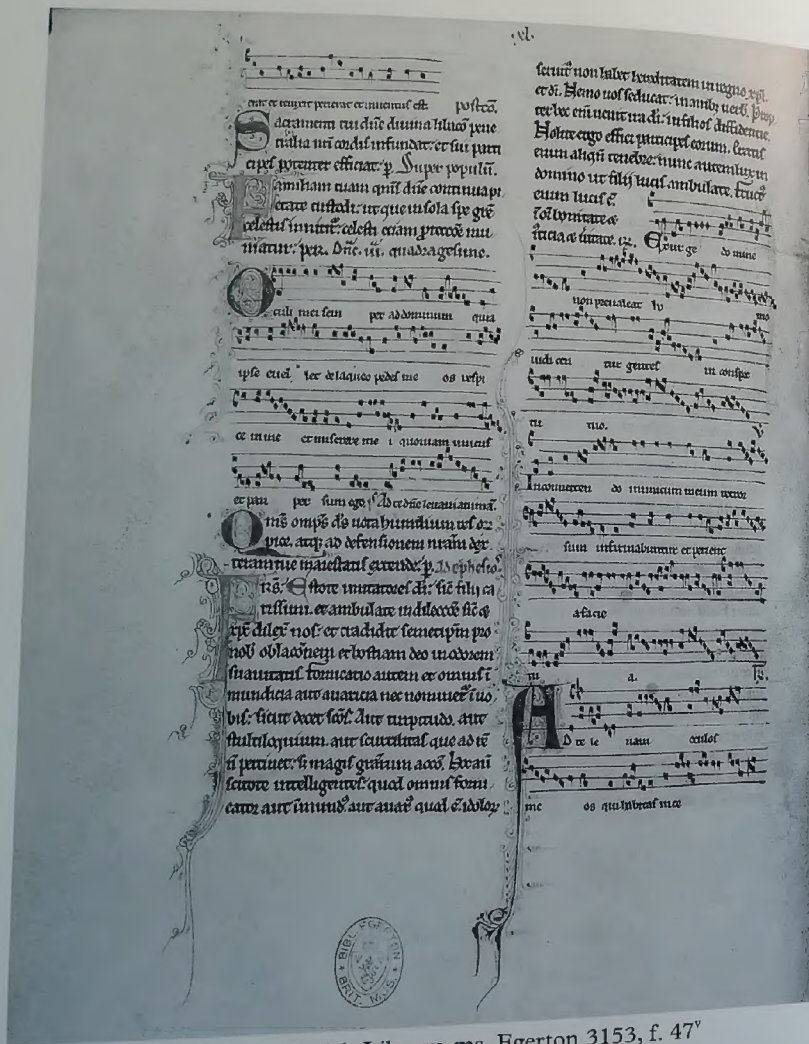 .xl.
erat et invent postcō.
Sacramenti tui dn̄e divina libacō pene
tralia nr̄i cordis infundat: et sui parti
cipes potenter efficiat. p. Super populū.
Familiam tuam qms̄ dn̄e continua pi
etate custodi: ut que in sola spe grē
celestis innitit᷑: celesti etiam protectōe mu
niatur: per. Dn̄c. iii. quadragesime.
Oculi mei sem per ad dominum quia
ipse evel let de laqueo pedes me os respi
ce in me et miserere me i quoniam unicus
et pau per sum ego. ps̄ Ad te dn̄e levavi animā.
Oms̄ omps̄ ds̄ vota humilium res
pice. atq; ad defensionem nr̄am dex
teram tue maiestatis extende. p. Ad ephesios.
Frs̄. Estote imitatores di: sic̄ filij ca
rissimi. et ambulate in dilectōe sic̄ &
xp̄c dilex̄ nos: et tradidit semetip̄m pro
nob̄ oblacōnem et hostiam deo in odorem
suavitatis. fornicatio autem et omnis ī
mundicia aut avaricia nec nominet᷑ ī vo
bis: sicut decet sc̄os. Aut turpitudo. aut
stultiloquium. aut scurrilitas que ad rē
n̄ pertinet: sed magis grārum accō. Hoc aū
scitote intelligentes: quod omnis forni
cator aut īmund᷑ aut avar᷑ quod ē idolor
servit᷑ non habet hereditatem in regno xp̄i.
et di. Nemo vos seducat: inanib᷑ verb̄. Prop
ter hec eni venit ira di: in filios diffidentie.
Nolite ergo effici participes eorum. Eratis
enim aliqn̄ tenebre: nunc autem lux in
domino ut filij lucis ambulate. Fruct᷑
enim lucis ē
ī oī bonitate &
iusticia & veritate. Gr.
Exur ge do mine
non prevaleat ho mo
iudicen tur gentes in conspe
ctu tuo. V.
In converten do inimicum meum retror
sum infirmabuntur et perient
a facie
tu a. Tr.
Ad te le vavi oculos
me os qui habitas in ce
BIBL. EGERTON
BRIT. MUS.
Library, ms. Egerton 3153, f. 47v